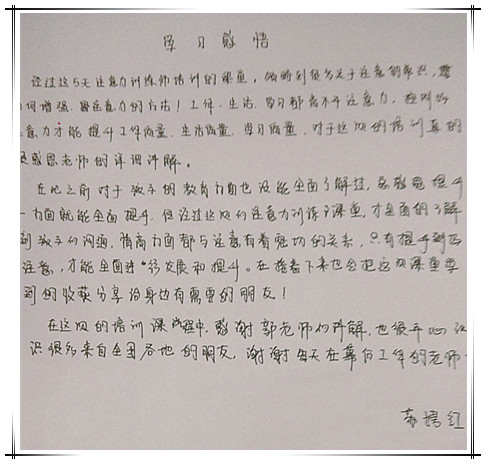 学习感悟
经过这5天注意力训练师培训的课堂，领略到很多关于注意的常识，
何增强 注意力的方法！工作、生活、学习都离不开注意力，
意力才能提升工作质量、生活质量、学习质量，对于这次的培训真的
感恩老师的详细讲解。
在此之前对于孩子的教育方面也没能全面了解过，总感觉提升
一方面就能全面提升，但经过这次的注意力训练课堂，才全面的了解
到孩子们沟通，情商方面都与注意有着密切的关系，只有提升到
注意，才能全面进一步发展和提升。在接着下来也会把这次课堂学
到的收获分享给身边有需要的朋友！
在这次的培训课程中，感谢郭老师的讲解，也很开心认
识很多来自全国各地的朋友，谢谢每天在幕后工作的老师